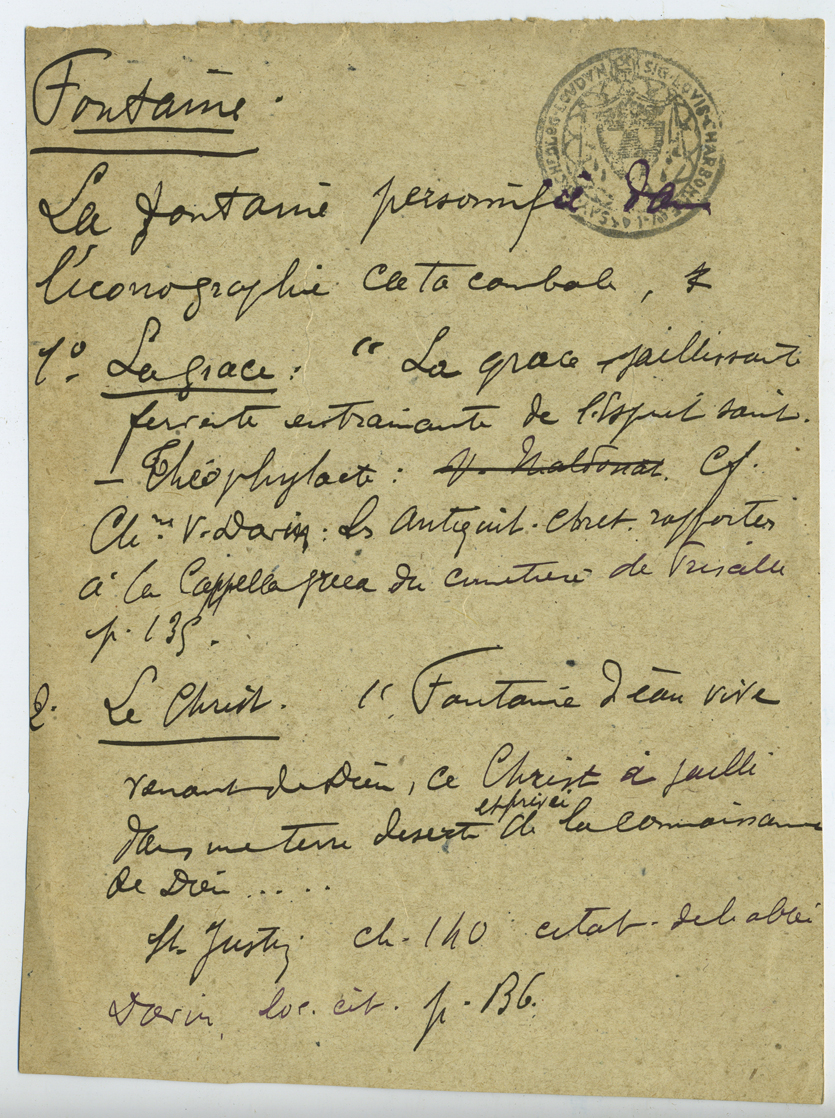 Fontaine.
La fontaine personnifie dans
l'iconographie catacombale,
1º. La grace : " La grace jaillissante
fervente entrainante de l'Esprit saint.
– Théophylacte : V. Maldonat. Cf.
Chne. V. Davin : Les Antiquit. chret. rapportees
à la Cappella greca du cimetière de Priscille
p. 135.
2. Le Christ. " Fontaine d'eau vive
venant de Dieu, ce Christ a jailli
dans une terre deserte et privée de la connaissance
de Dieu .....
St. Justin ch. 140 citat. de l'abbé
Davin, loc. cit. p. 136.
SIG. LOVIS CHARBON